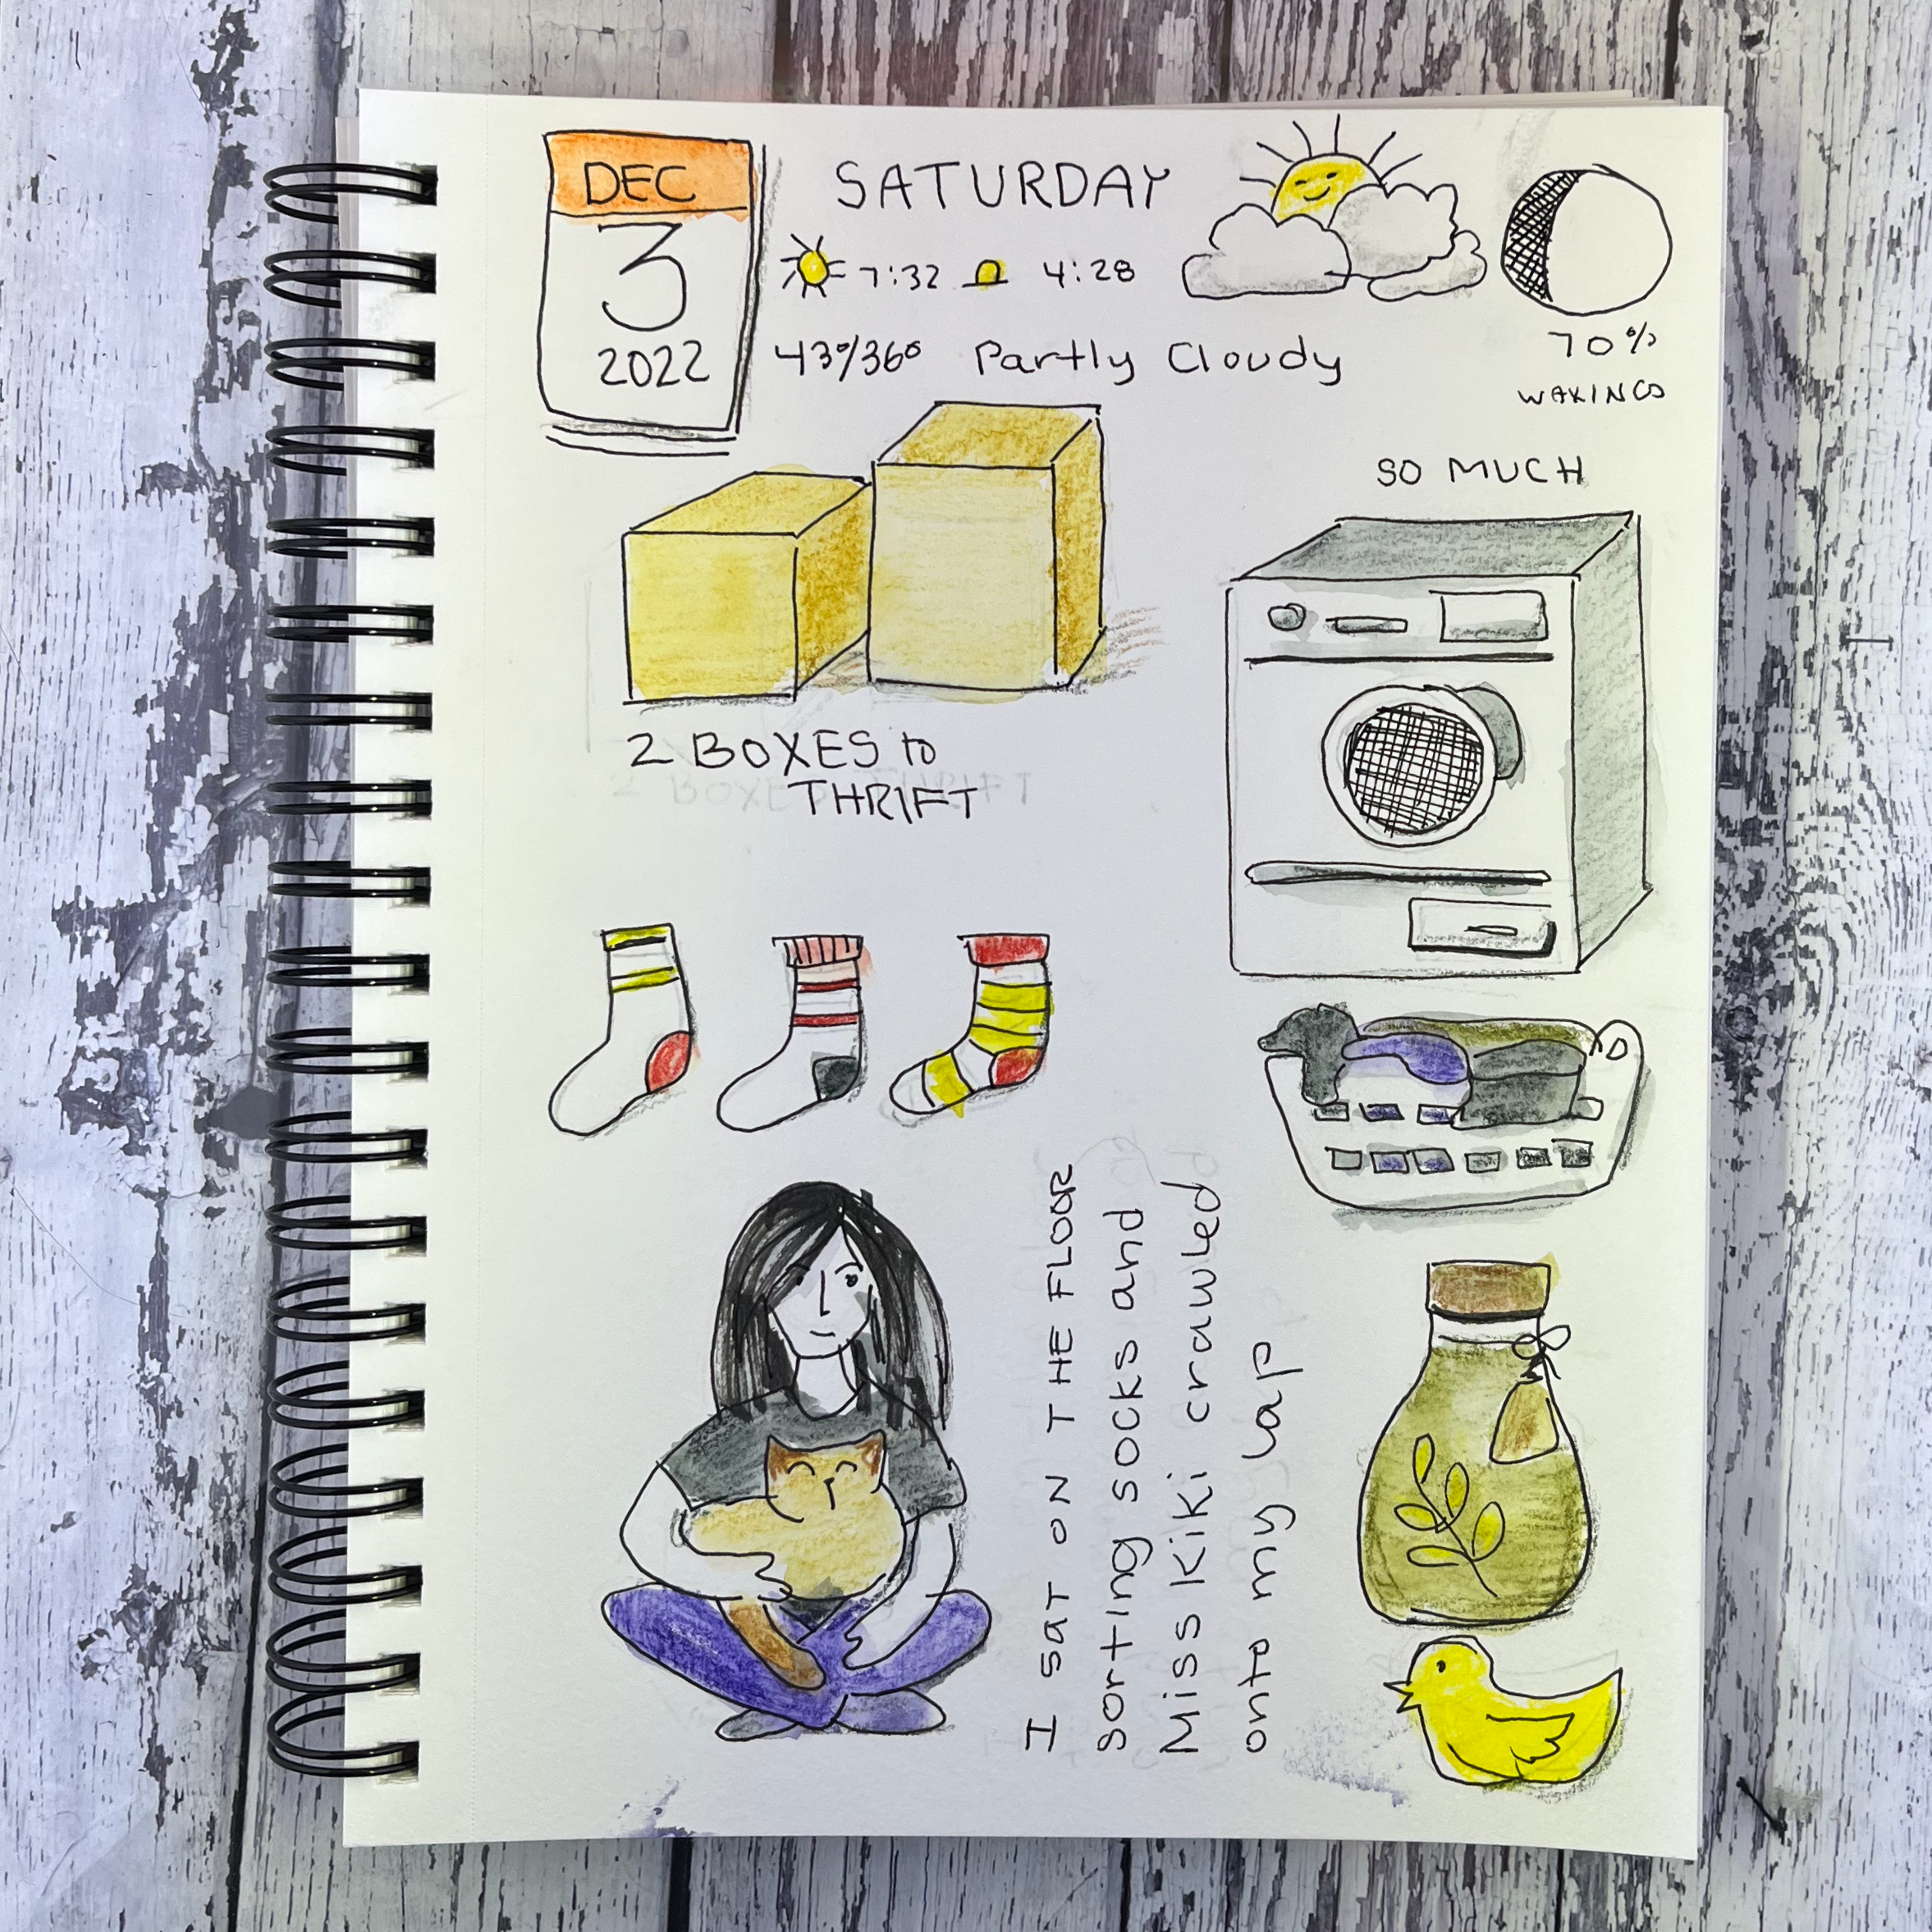 DEC
3
2022
SATURDAY
7:32 4:28
43°/36° Partly Cloudy
70%
WAXING
SO MUCH
2 BOXES to
THRIFT
I SAT ON THE FLOOR
sorting socks and
Miss Kiki crawled
onto my lap